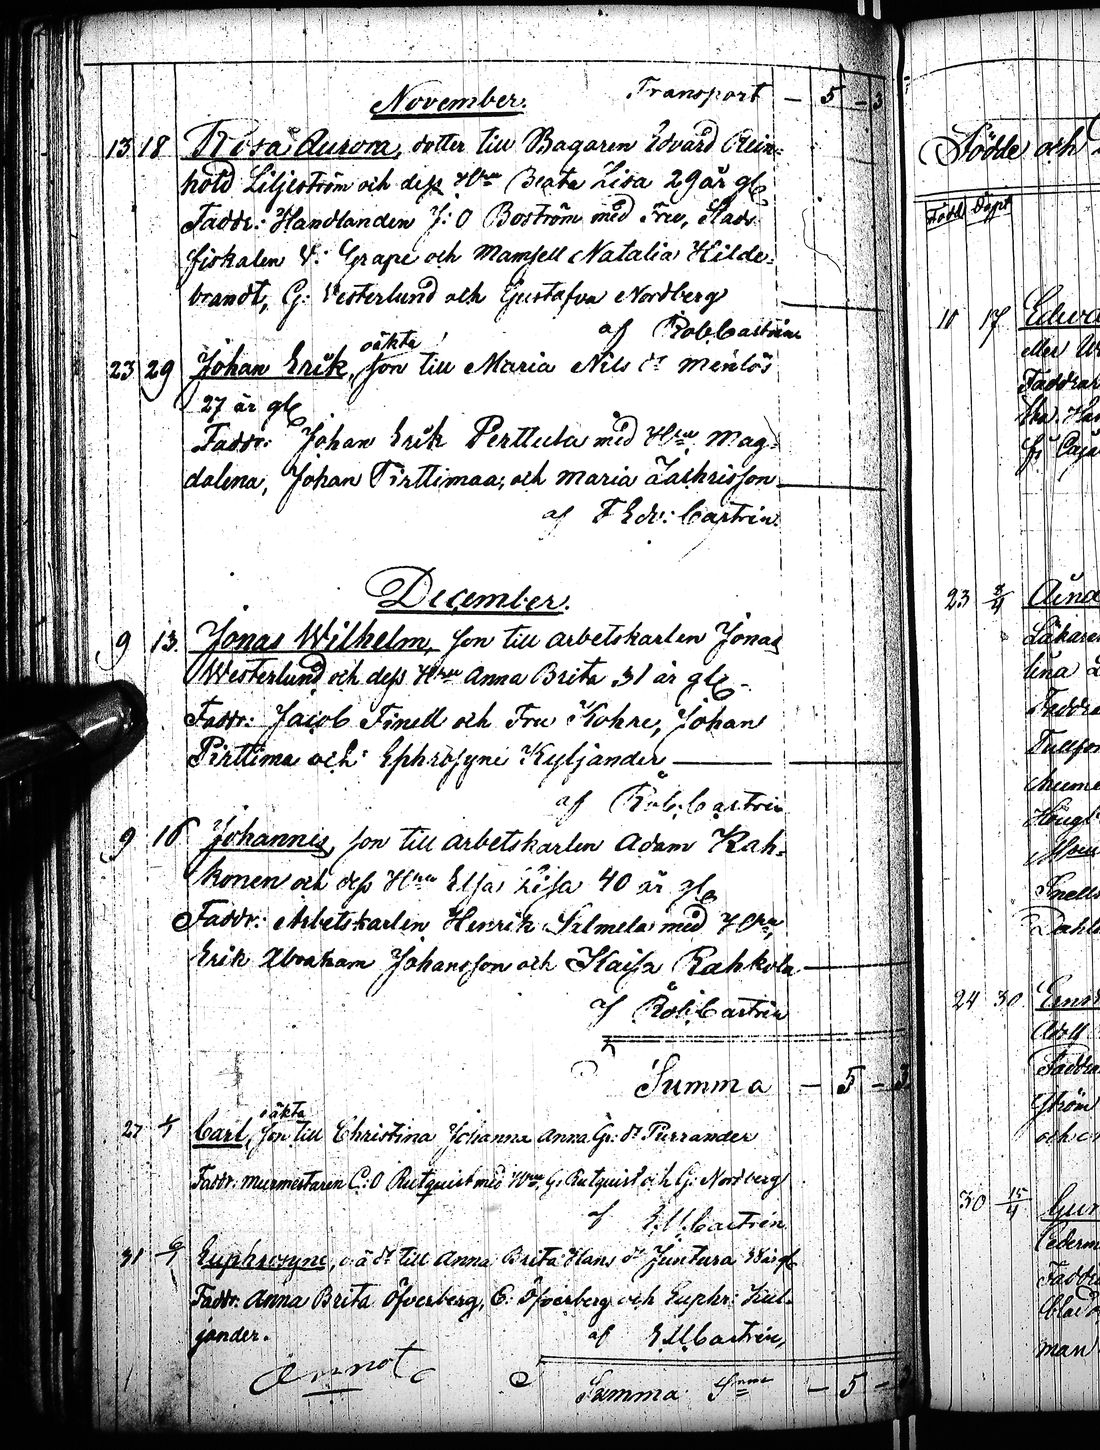 November.
Transport – 5 – 3
13 18 Rosa Aurora, dotter till Bagaren Edvard Rein-
hold Liljeström och dess Hru Beata Lisa 29 år gl
Faddr: Handlanden J: O Boström med Fru, Stads
fiskalen V: Grape och Mamsell Natalia Hilde-
brandt, G: Vesterlund och Gustafva Nordberg
af Rob. Castrén
oäkta
23 29 Johan Erik, son till Maria Nils dr
27 år gl
Faddr: Johan Erik Perttula med Hru Mag-
dalena, Johan Pirttimaa, och Maria Zachrisson
af F Edv: Castrén
December.
9 13. Jonas Wilhelm, son till arbetskarlen Jonas
Westerlund och dess Hru Anna Brita 31 år gl
Faddr: Jacob Finell och Fru Kohre, Johan
Pirttima och Ephrosyne Kyljander
af Rob. Castrén
9 16 Johannes, son till arbetskarlen Adam Rah-
konen och dess Hru Elsa Lisa 40 år gl
Faddr: Arbetskarlen Henrik Salmela med Hru,
Erik Abraham Johansson och Kaisa Rahkola
af Rob. Castrén
Summa – 5 – 3
oäkta
27 1/1 Carl, son till Christina Johanna Anna Gr: dr Purrander
Faddr: Murmestaren C: O Rutquist med Hru, G: Rutquist och G: Nordberg
af E. M. Castrén
31 6/1 Euphrosyne, o ä dr till Anna Brita Hans dr Juntura
Faddr. Anna Brita Öfverberg, C: Öfverberg och Euphr: Kil-
jander.
af E M Castrén,
Annot
Summa – 5 –
Födde och
Född Döpt
11 17
eller
Faddrar
23 3/4 Aina
Läkare
lina
Faddra
24 30
Adolf
Faddra
ström
och
30 15/4
Ceder
Faddra
man